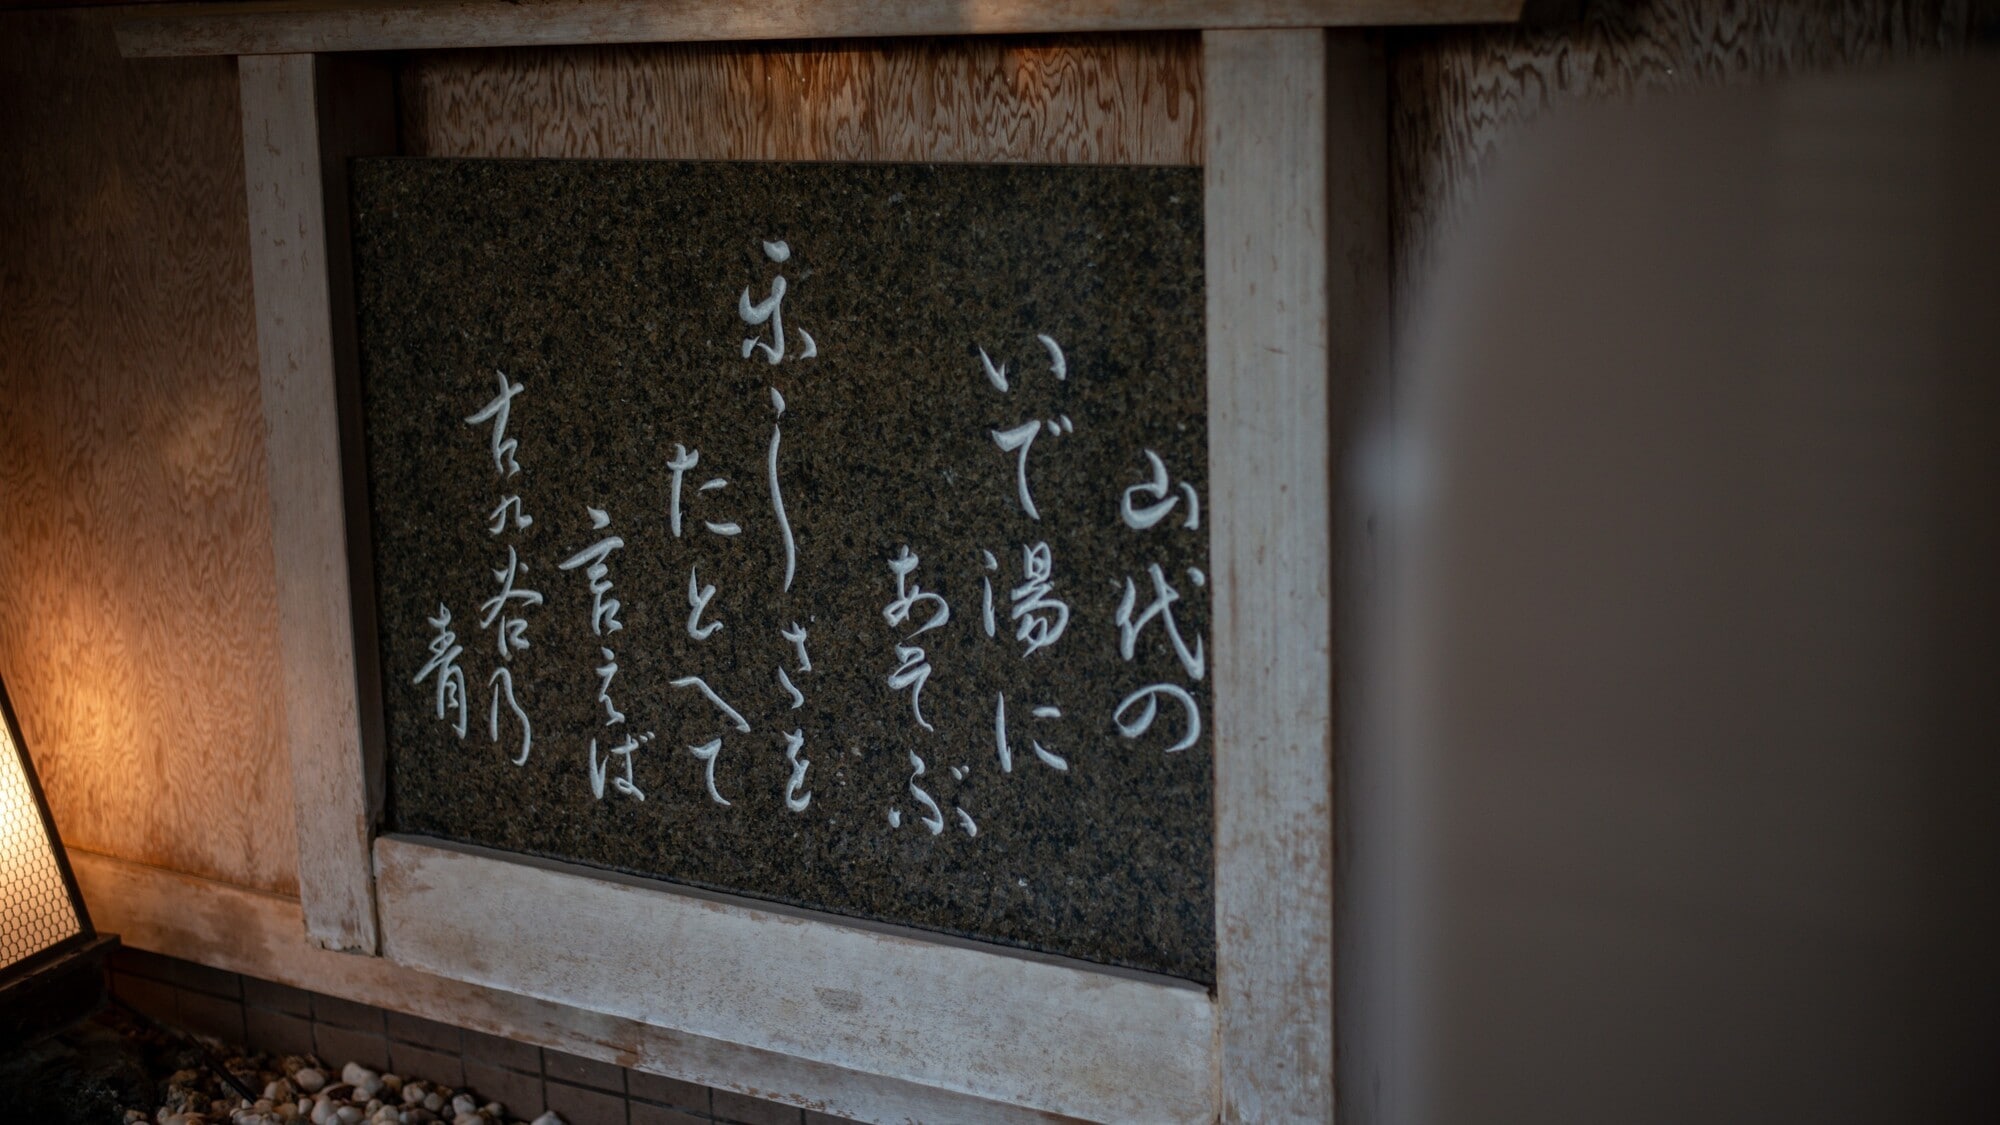 山代の
いで湯に
あそぶ
楽しさを
たとへて
言えば
古九谷乃
青